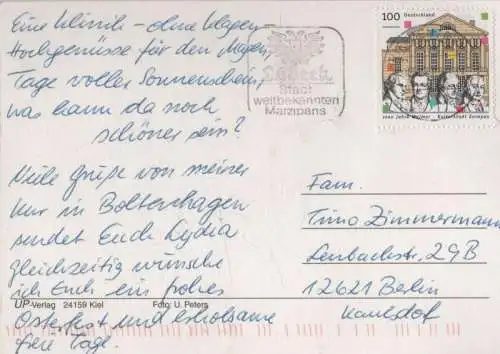 Eine Klinik – ohne Klagen –
Hochgenüsse für den Magen,
Tage voller Sonnenschein,
was kann da noch
schöner sein?
Viele Grüße von meiner
Kur in Boltenhagen
sendet Euch Lydia
gleichzeitig wünsche
ich Euch ein frohes
Osterfest und erholsame
freie Tage.
UP-Verlag 24159 Kiel Foto: U. Peters
Lübeck
Stadt
weltbekannten
Marzipans
100 Deutschland
1100 Jahre Weimar - Kulturstadt Europas
Fam.
Timo Zimmermann
Lenbachstr. 29B
12621 Berlin
Kaulsdorf